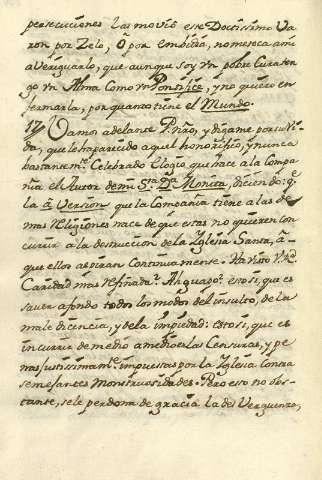 persecuciones las movió este Doctissimo Va
ron por Zelo, ò por embidia, no me toca a mi
averiguarlo, que aunque soy vn pobre Cura ten
go vn Alma como vn Pontifice, y no quiero en
fermarla, por quanto tiene el Mundo.
17 Vamos adelante P. nro, y digame por su Vi
da, que le ha parecido aquel honorifico, y nunca
bastantemte. Celebrado Elogio que hace a la Compa
ñia el Autor de mi Sra. Da. Monita, diciendo: q
la aVersion que la Compañia tiene a las de
mas Religiones nace de que estas no quieren con
currir a la destruccion de la Iglesia Santa, â
que ellos aspiran Continuamente. Ha visto V. Rd
Caridad mas refinada? Ah guapo! esto si, que es
saver a fondo todos los modos del insulto, de la
maledicencia, y de la impiedad: esto si, que es
incurrir de medio a medio en las Censuras, y pe
nas justissimamte. impuestas por la Iglesia Contra
semejantes Monstruosidades. Pero esto no obs
tante, se le perdona de gracia la desverguenza,